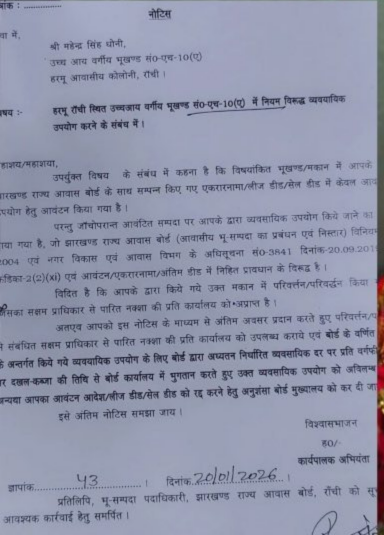 नोटिस
श्री महेन्द्र सिंह धोनी,
उच्च आय वर्गीय भूखण्ड सं0-एच-10(ए)
हरमू आवासीय कोलोनी, राँची।
हरमू राँची स्थित उच्चआय वर्गीय भूखण्ड सं0-एच-10(ए) में नियम विरूद्ध व्यवसायिक
उपयोग करने के संबंध में।
महाशय/महाशया,
उपर्युक्त विषय के संबंध में कहना है कि विषयांकित भूखण्ड/मकान में आपके
झारखण्ड राज्य आवास बोर्ड के साथ सम्पन्न किए गए एकरारनामा/लीज डीड/सेल डीड में केवल आवा
उपयोग हेतु आवंटन किया गया है।
परन्तु जाँचोपरान्त आवंटित सम्पदा पर आपके द्वारा व्यवसायिक उपयोग किये जाने का
पाया गया है, जो झारखण्ड राज्य आवास बोर्ड (आवासीय भू-सम्पदा का प्रबंधन एवं निस्तार) विनिय
2004 एवं नगर विकास एवं आवास विभाग के अधिसूचना सं0-3841 दिनांक-20.09.201
कंडिका-2(2)(xi) एवं आवंटन/एकरारनामा/अंतिम डीड में निहित प्रावधान के विरूद्ध है।
विदित है कि आपके द्वारा किये गये उक्त मकान में परिवर्त्तन/परिवर्द्धन किया
जिसका सक्षम प्राधिकार से पारित नक्शा की प्रति कार्यालय को अप्राप्त है।
अतएव आपको इस नोटिस के माध्यम से अंतिम अवसर प्रदान करते हुए परिवर्त्तन/प
से संबंधित सक्षम प्राधिकार से पारित नक्शा की प्रति कार्यालय को उपलब्ध कराये एवं बोर्ड के वर्णित
के अन्तर्गत किये गये व्यवसायिक उपयोग के लिए बोर्ड द्वारा अध्यतन निर्धारित व्यवसायिक दर पर प्रति वर्गफी
दर दखल-कब्जा की तिथि से बोर्ड कार्यालय में भुगतान करते हुए उक्त व्यवसायिक उपयोग को अविलम्ब
अन्यथा आपका आवंटन आदेश/लीज डीड/सेल डीड को रद्द करने हेतु अनुशंसा बोर्ड मुख्यालय को कर दी जा
इसे अंतिम नोटिस समझा जाय।
विश्वासभाजन
ह0/-
कार्यपालक अभियंता
ज्ञापांक..........43..........। दिनांक.20/01/2026..।
प्रतिलिपि, भू-सम्पदा पदाधिकारी, झारखण्ड राज्य आवास बोर्ड, राँची को सू
आवश्यक कार्रवाई हेतु समर्पित।